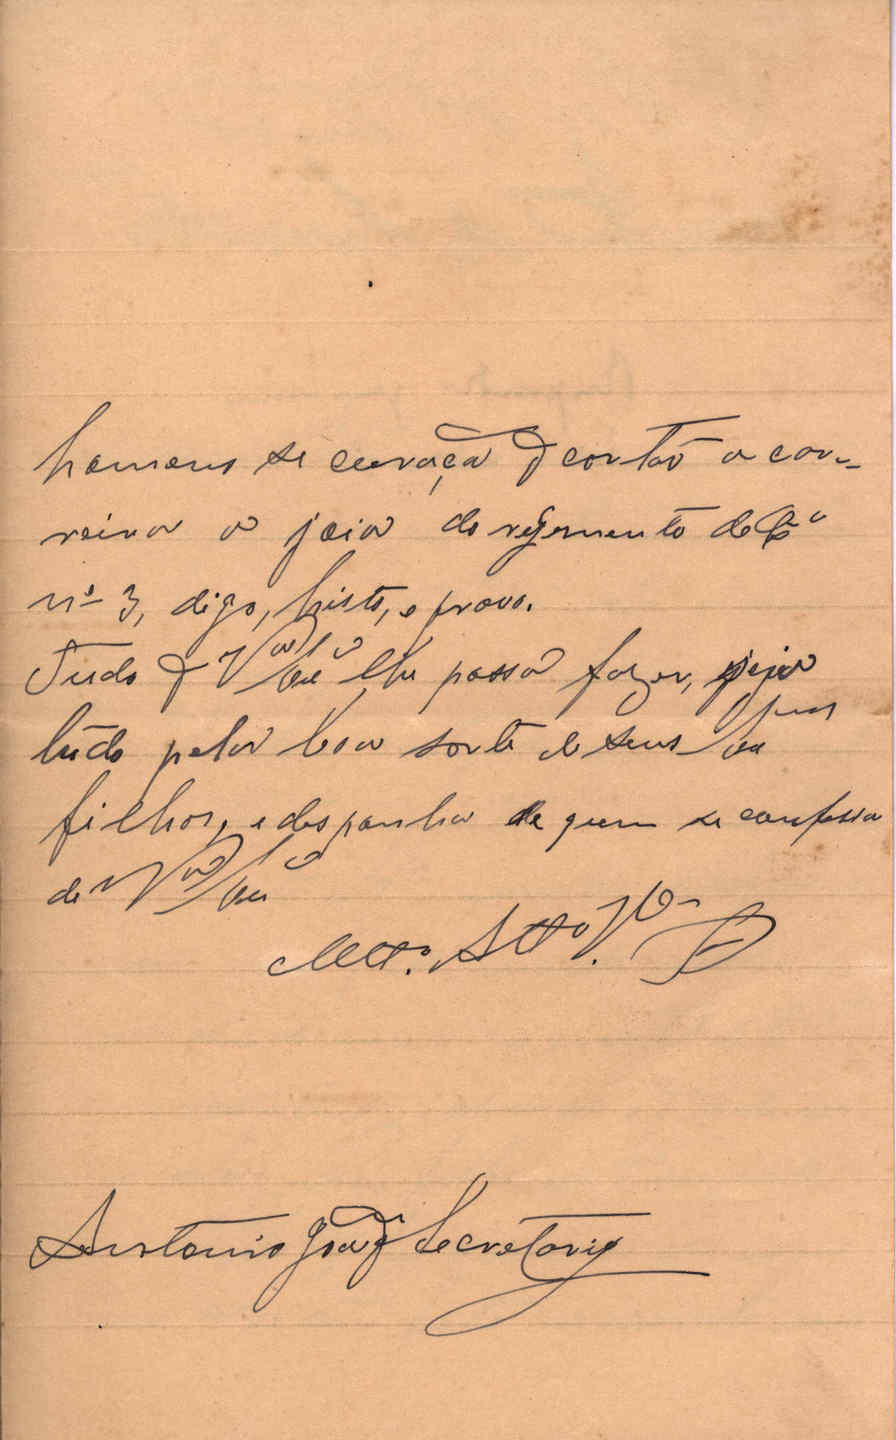 homens se curaça q cortão a car-
reira a joia do regimento de C.ª
nº 3, digo, histo, e provo.
Tudo q V.ª Ex.ª lhe possa fazer, peço
tudo pela boa sorte de seus Ex.mos
filhos, e desponha de quem se confessa
de V.ª Ex.ª
Mtº. Attº. V.or
Antonio Secretario